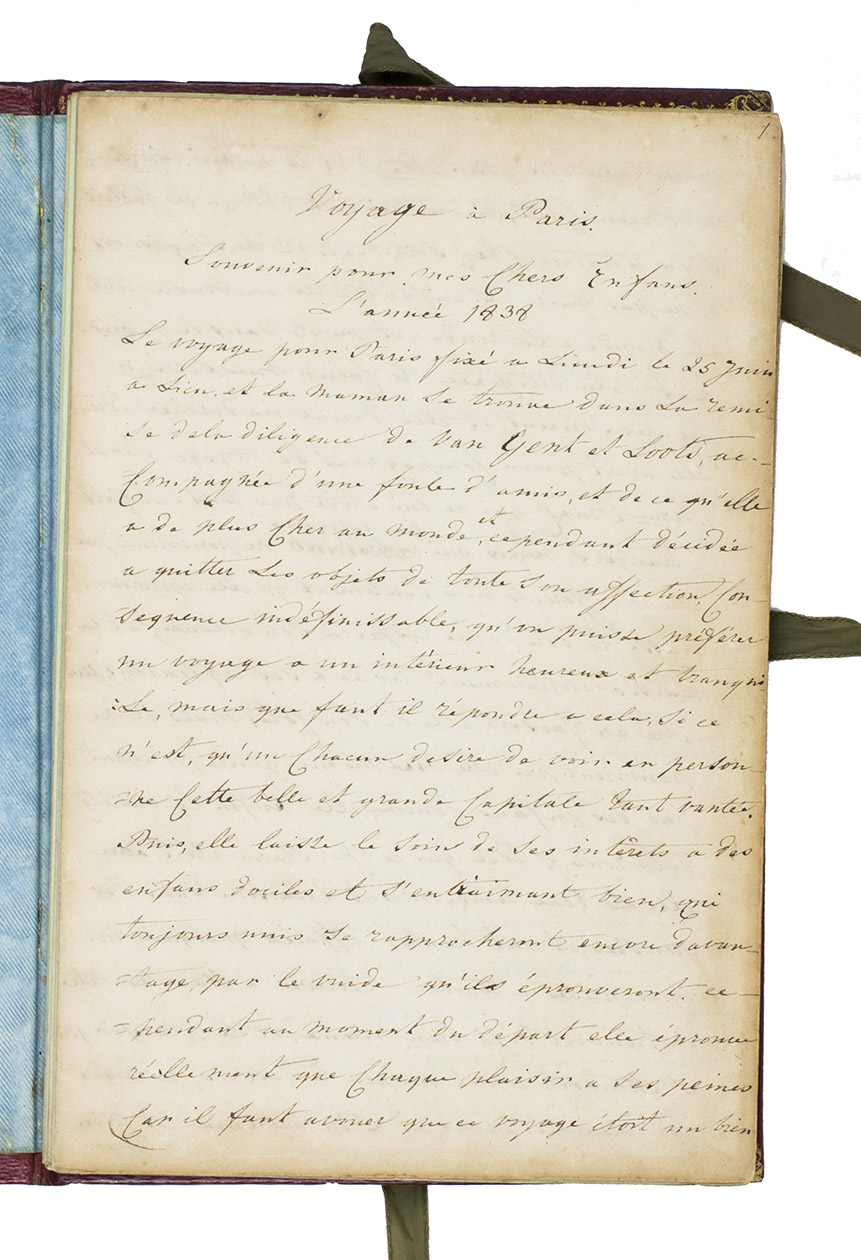 1
Voyage à Paris.
Souvenir pour mes Chers Enfans.
L'année 1838
Le voyage pour Paris fixé a Lundi le 25 Juin
a Lieu, et la maman se trouve dans La remi
se dela diligence de Van Gent et Loots, ac-
=Compagnée d'une foule d'amis, et de ce qu'elle
a de plus Cher au monde, et cependant décidée
a quitter Les objets de toute son affection, Con-
sequence indéfinissable, qu'on puisse préférer
un voyage a un intérieur heureux et tranqui
:Le, mais que faut il répondre a cela, si ce
n'est, qu'un Chacun desire de voir en person-
=ne Cette belle et grande Capitale tant vantée.
Puis, elle laisse le soins de ses intêrets a des
enfans dociles et s'entraimant bien, qui
toujours unis se rapprocheront encore davan-
=tage, par le vuide qu'ils éprouveront. ce-
=pendant au moment du départ elle éprouve
réelle ment que Chaque plaisir a ses peines
Car il faut avouer que ce voyage étoit un bien